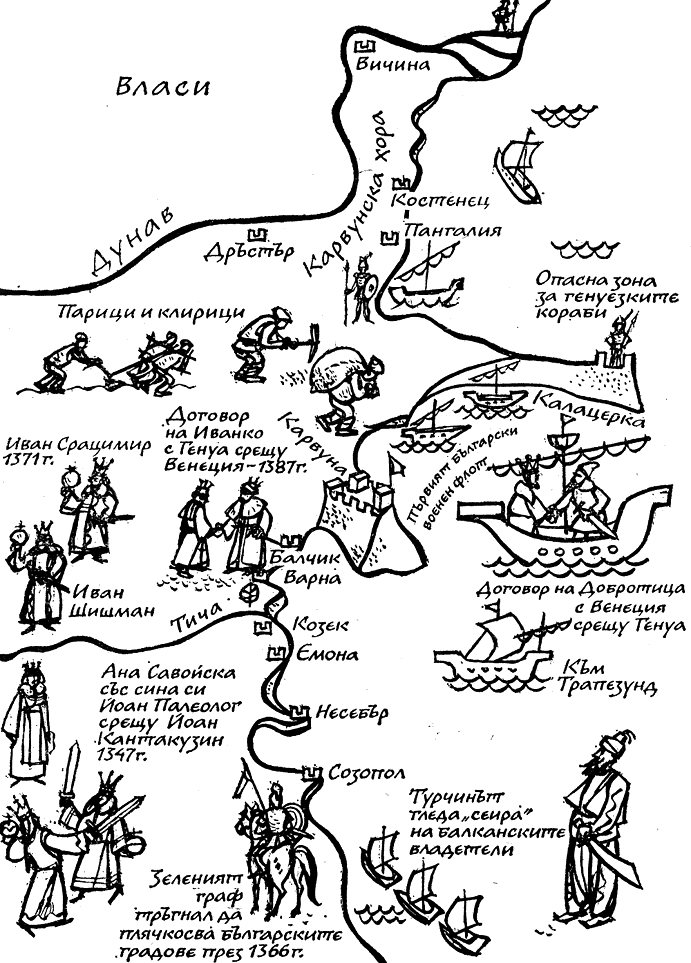 Вичина
Власи
Карвунска хора
Костенец
Дунав
Дръстър
Панталия
Опасна зона
за генуезките
кораби
Парици и клирици
Калацерка
Договор
на Иванко
с Генуа срещу
Венеция-1387г.
Иван Срацимир
1371г.
Карвуна
Първият български
военен флот
Балчик
Варна
Иван
Шишман
Договор на Добротица
с Венеция
срещу Генуа
Тича
Козек
Емона
Ана Савойска
със сина си
Йоан Палеолог
срещу Йоан
Кантакузин
1347г.
Към
Трапезунд
Несебър
Созопол
Турчинът
гледа „сеира"
на балканските
владетели
Зеленият
граф
тръгнал да
плячкосва българските
градове през 1366г.